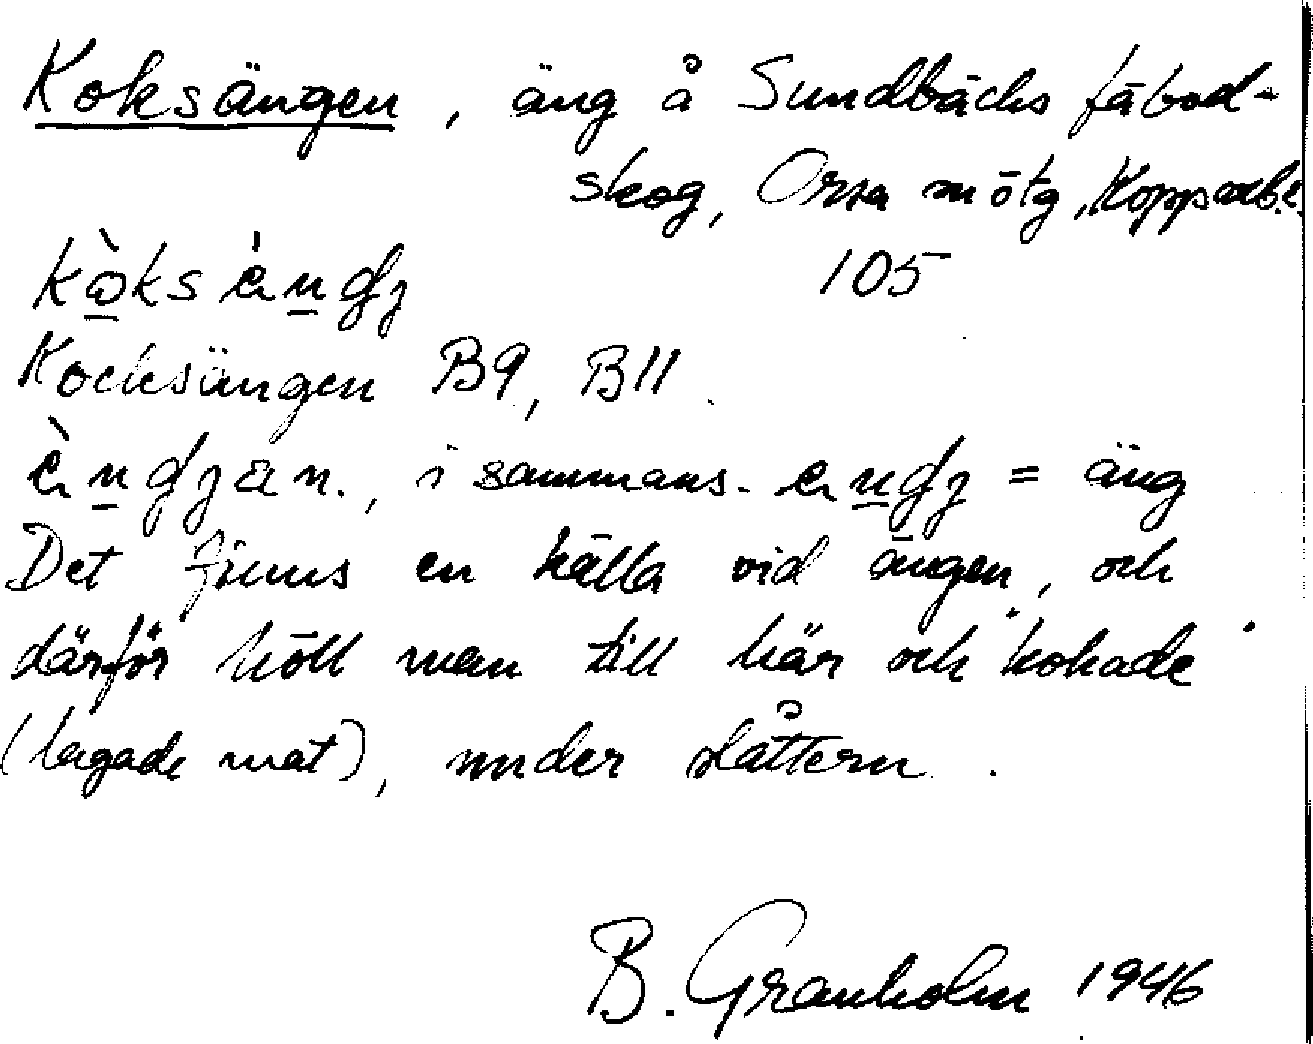 Koksängen, äng å Sundbäcks fäbod-
skog, Orsa
105
Kocksängen B9, B11.
i sammans. = äng
Det finns en källa vid ängen, och
därför höll man till här och "kokade"
(lagade mat), under slåttern.
B. Granholm 1946